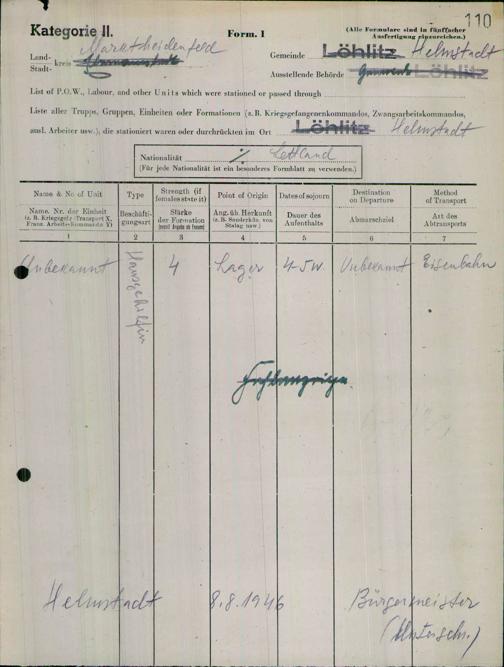 110
Kategorie II.
Form. 1
(Alle Formulare sind in fünffacher
Ausfertigung einzureichen.)
Marktheidenfeld
Land-
Stadt- kreis
Gemeinde Löhlitz Helmstadt
Ausstellende Behörde Gemeinde Löhlitz
List of P.O.W., Labour, and other Units which were stationed or passed through
Liste aller Trupps, Gruppen, Einheiten oder Formationen (z. B. Kriegsgefangenenkommandos, Zwangsarbeitskommandos,
ausl. Arbeiter usw.), die stationiert waren oder durchrückten im Ort Löhlitz Helmstadt
Nationalität ./. Lettland
(Für jede Nationalität ist ein besonderes Formblatt zu verwenden.)
Name & No of Unit
Name, Nr. der Einheit
(z. B. Kriegsgef.-Transport X,
Franz. Arbeits-Kommando Y)
1
Type
Beschäfti-
gungsart
2
Strength (if
females state it)
Stärke
der Formation
3
Point of Origin
Ang. üb. Herkunft
(z. B. Sonderkdo. von
Stalag usw.)
4
Dates of sojourn
Dauer des
Aufenthalts
5
Destination
on Departure
Abmarschziel
6
Method
of Transport
Art des
Abtransports
7
Unbekannt
Hausgehilfin
4
Lager
4-5 W.
Unbekannt
Eisenbahn
Fehlanzeige
Helmstadt 8.8.1946 Bürgermeister
(Unterschr.)